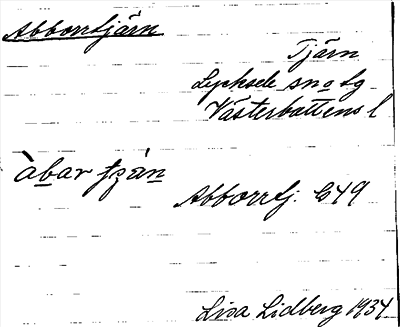 Abborrtjärn
Tjärn
Lycksele sn o lg
Västerbottens l
àbar
Abborrtj. G49
Lisa Lidberg 1934